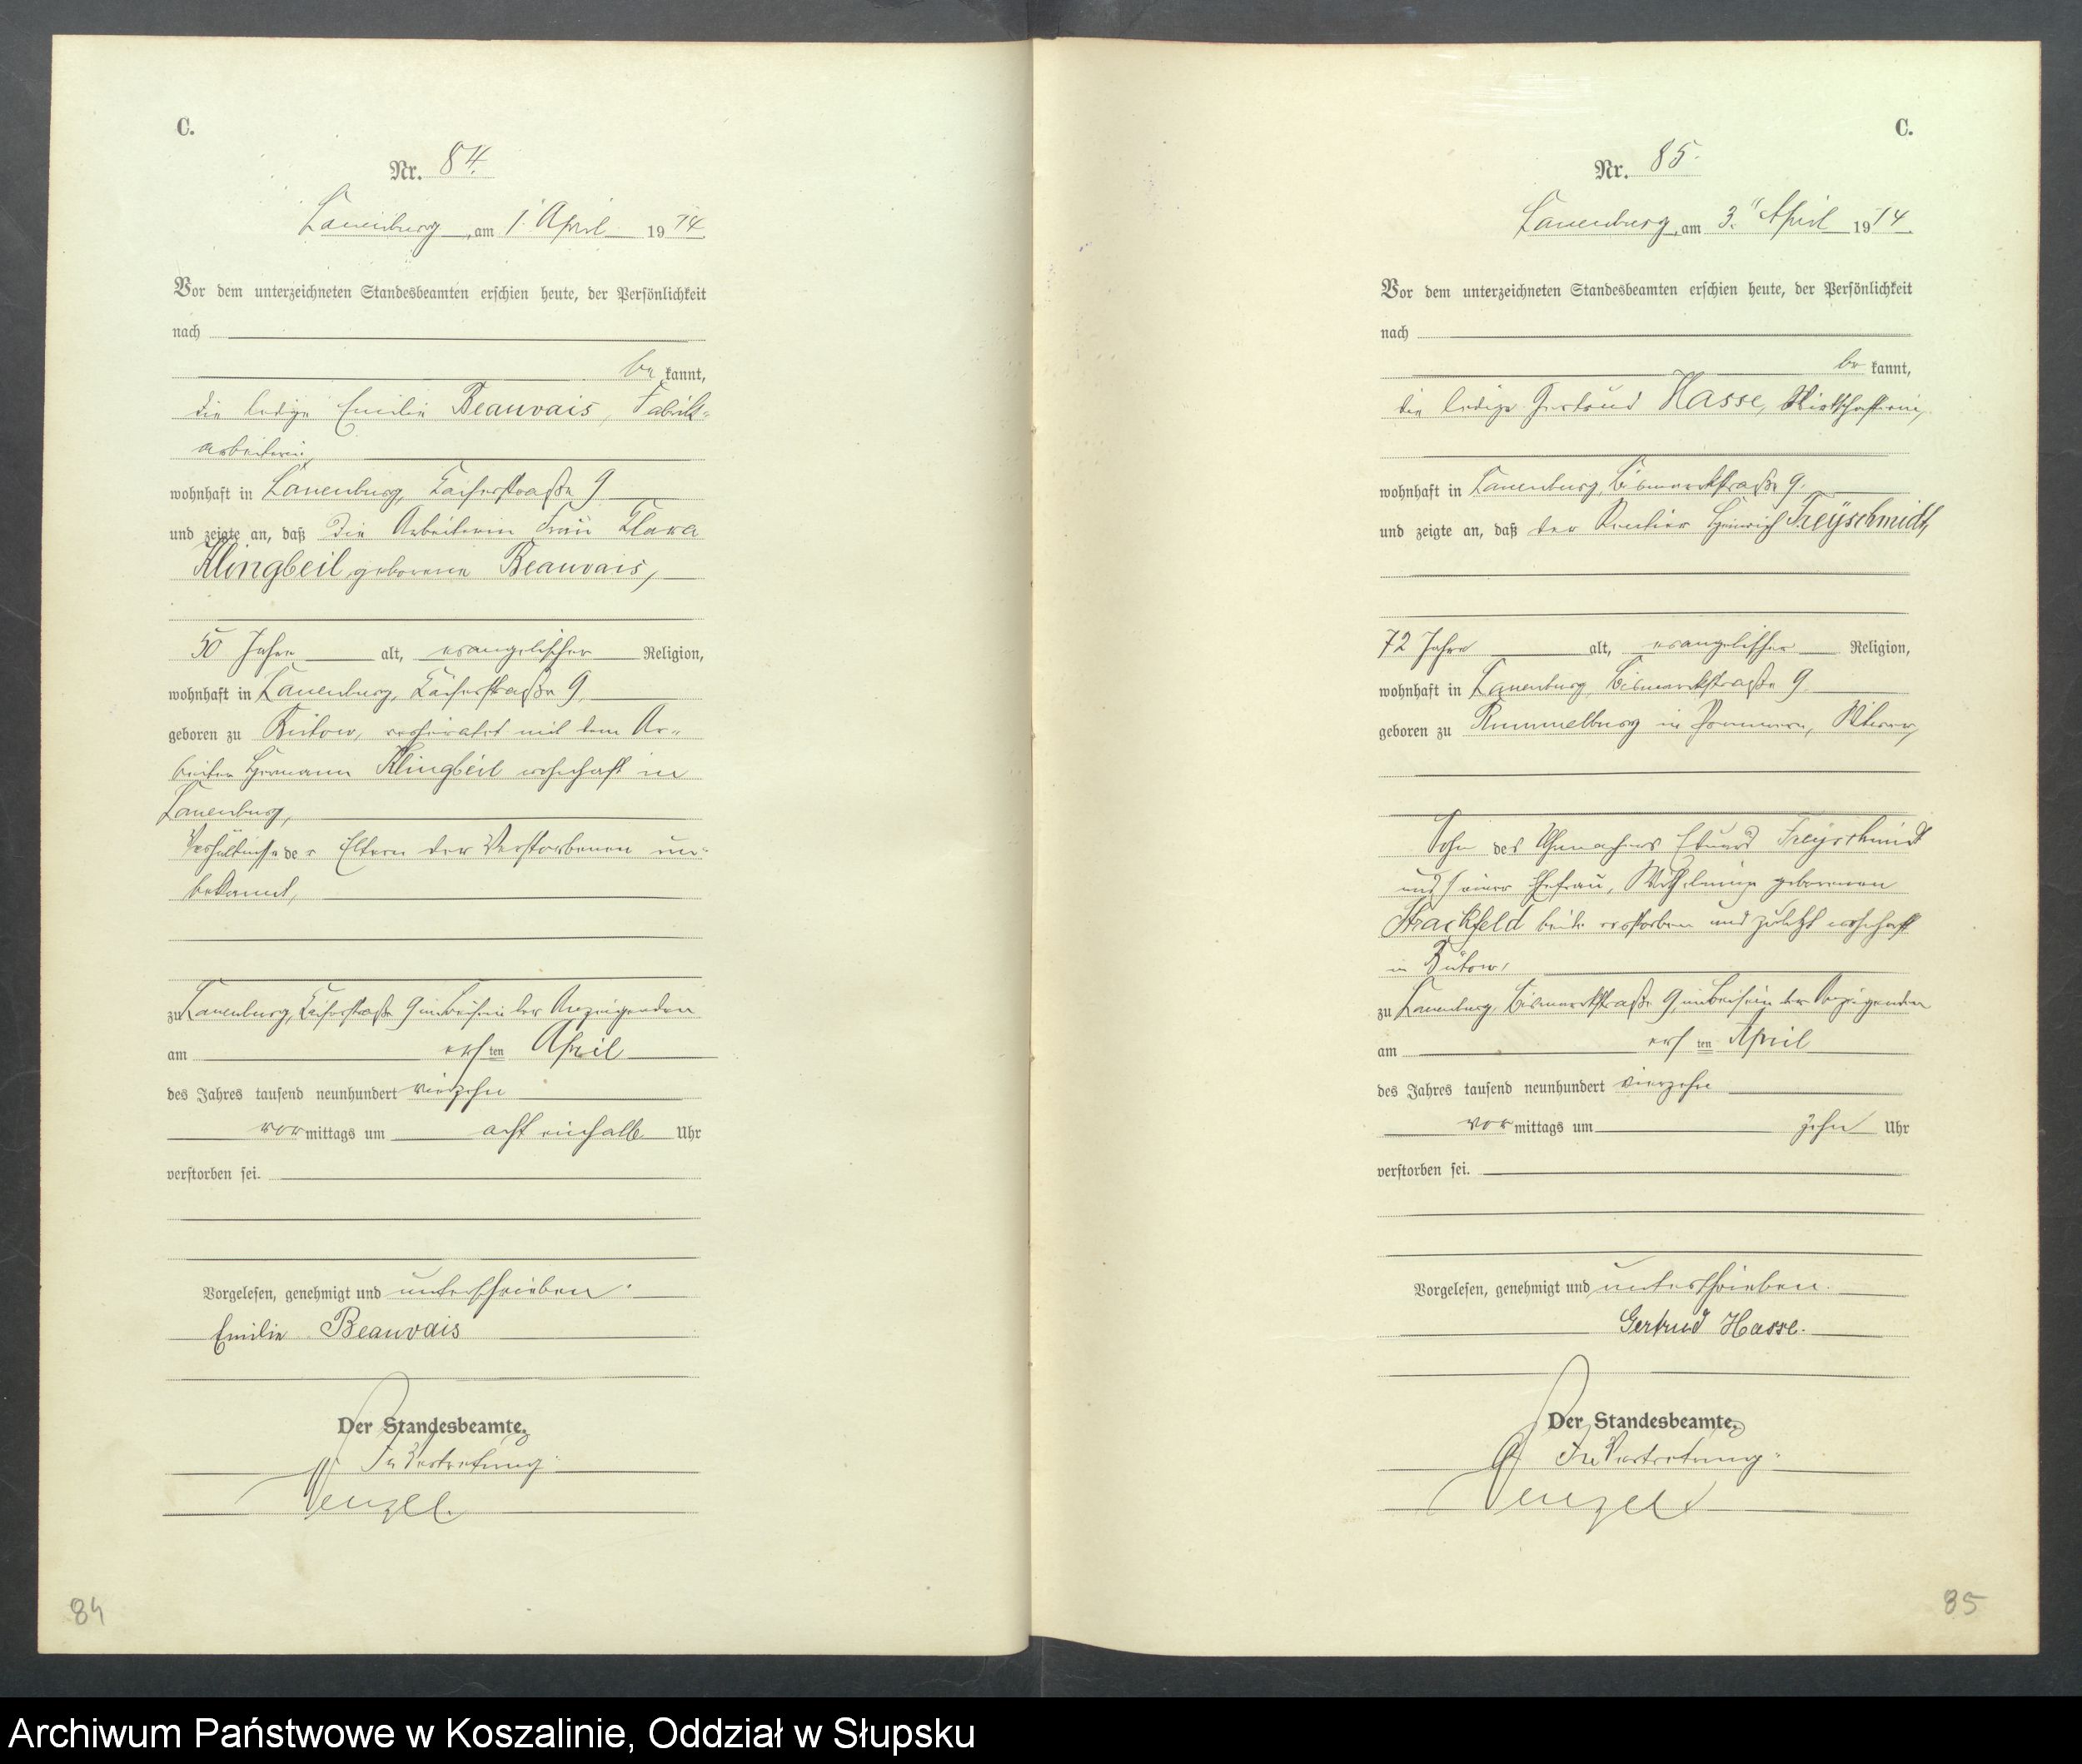 C.
Nr. 84.
Lauenburg, am 1. April 1914
Vor dem unterzeichneten Standesbeamten erschien heute, der Persönlichkeit
nach
be kannt,
die ledige Emilie Beauvais, Fabrik-
arbeiterin,
wohnhaft in Lauenburg, Kaiserstraße 9
und zeigte an, daß die Arbeiterin Frau Klara
Klingbeil, geborene Beauvais,
50 Jahre alt, evangelischer Religion,
wohnhaft in Lauenburg, Kaiserstraße 9,
geboren zu Bütow, verheiratet mit dem Ar-
beiter Hermann Klingbeil wohnhaft in
Lauenburg,
Verhältnisse der Eltern der Verstorbenen un-
bekannt,
zu Lauenburg, Kaiserstraße 9 im Beisein der Anzeigenden
am ersten April
des Jahres tausend neunhundert vierzehn
vormittags um acht einhalb Uhr
verstorben sei.
Vorgelesen, genehmigt und unterschrieben.
Emilie Beauvais
Der Standesbeamte.
In Vertretung:
Wenzel.
84
C.
Nr. 85.
Lauenburg, am 3. April 1914.
Vor dem unterzeichneten Standesbeamten erschien heute, der Persönlichkeit
nach
be kannt,
die ledige Gertrud Hasse, Wirtschafterin,
wohnhaft in Lauenburg, Bismarckstraße 9,
und zeigte an, daß der Rentier Heinrich Freyschmidt,
72 Jahre alt, evangelischer Religion,
wohnhaft in Lauenburg, Bismarckstraße 9,
geboren zu Rummelburg in Pommern, Witwer,
Sohn des Uhrmachers Eduard Freyschmidt
und seiner Ehefrau, Wilhelmine geborenen
Strackfeld beide verstorben und zuletzt wohnhaft
in Bütow,
zu Lauenburg, Bismarckstraße 9, im Beisein der Anzeigenden
am ersten April
des Jahres tausend neunhundert vierzehn
vormittags um zehn Uhr
verstorben sei.
Vorgelesen, genehmigt und unterschrieben.
Gertrud Hasse.
Der Standesbeamte.
In Vertretung:
Wenzel
85
Archiwum Państwowe w Koszalinie, Oddział w Słupsku